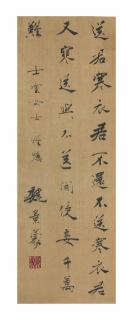 送君寒衣君不還不送寒衣君
又寒送與不送間使妾千萬
難
士雲女士
魏景蒙